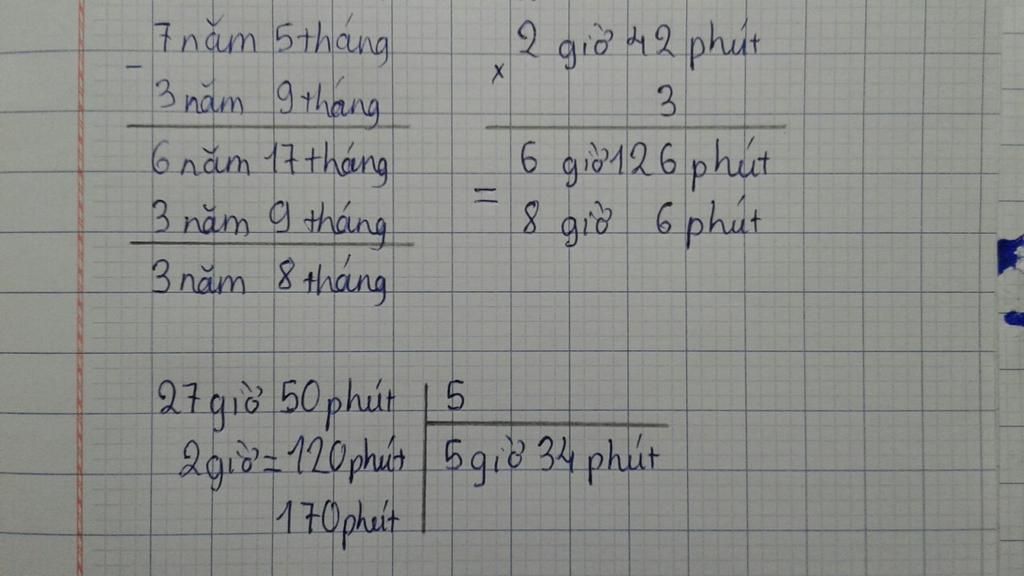 7 năm 5 tháng
-
3 năm 9 tháng
6 năm 17 tháng
3 năm 9 tháng
3 năm 8 tháng
2 giờ 42 phút
x
3
6 giờ 126 phút
=
8 giờ 6 phút
27 giờ 50 phút 5
2 giờ = 120 phút 5 giờ 34 phút
170 phút